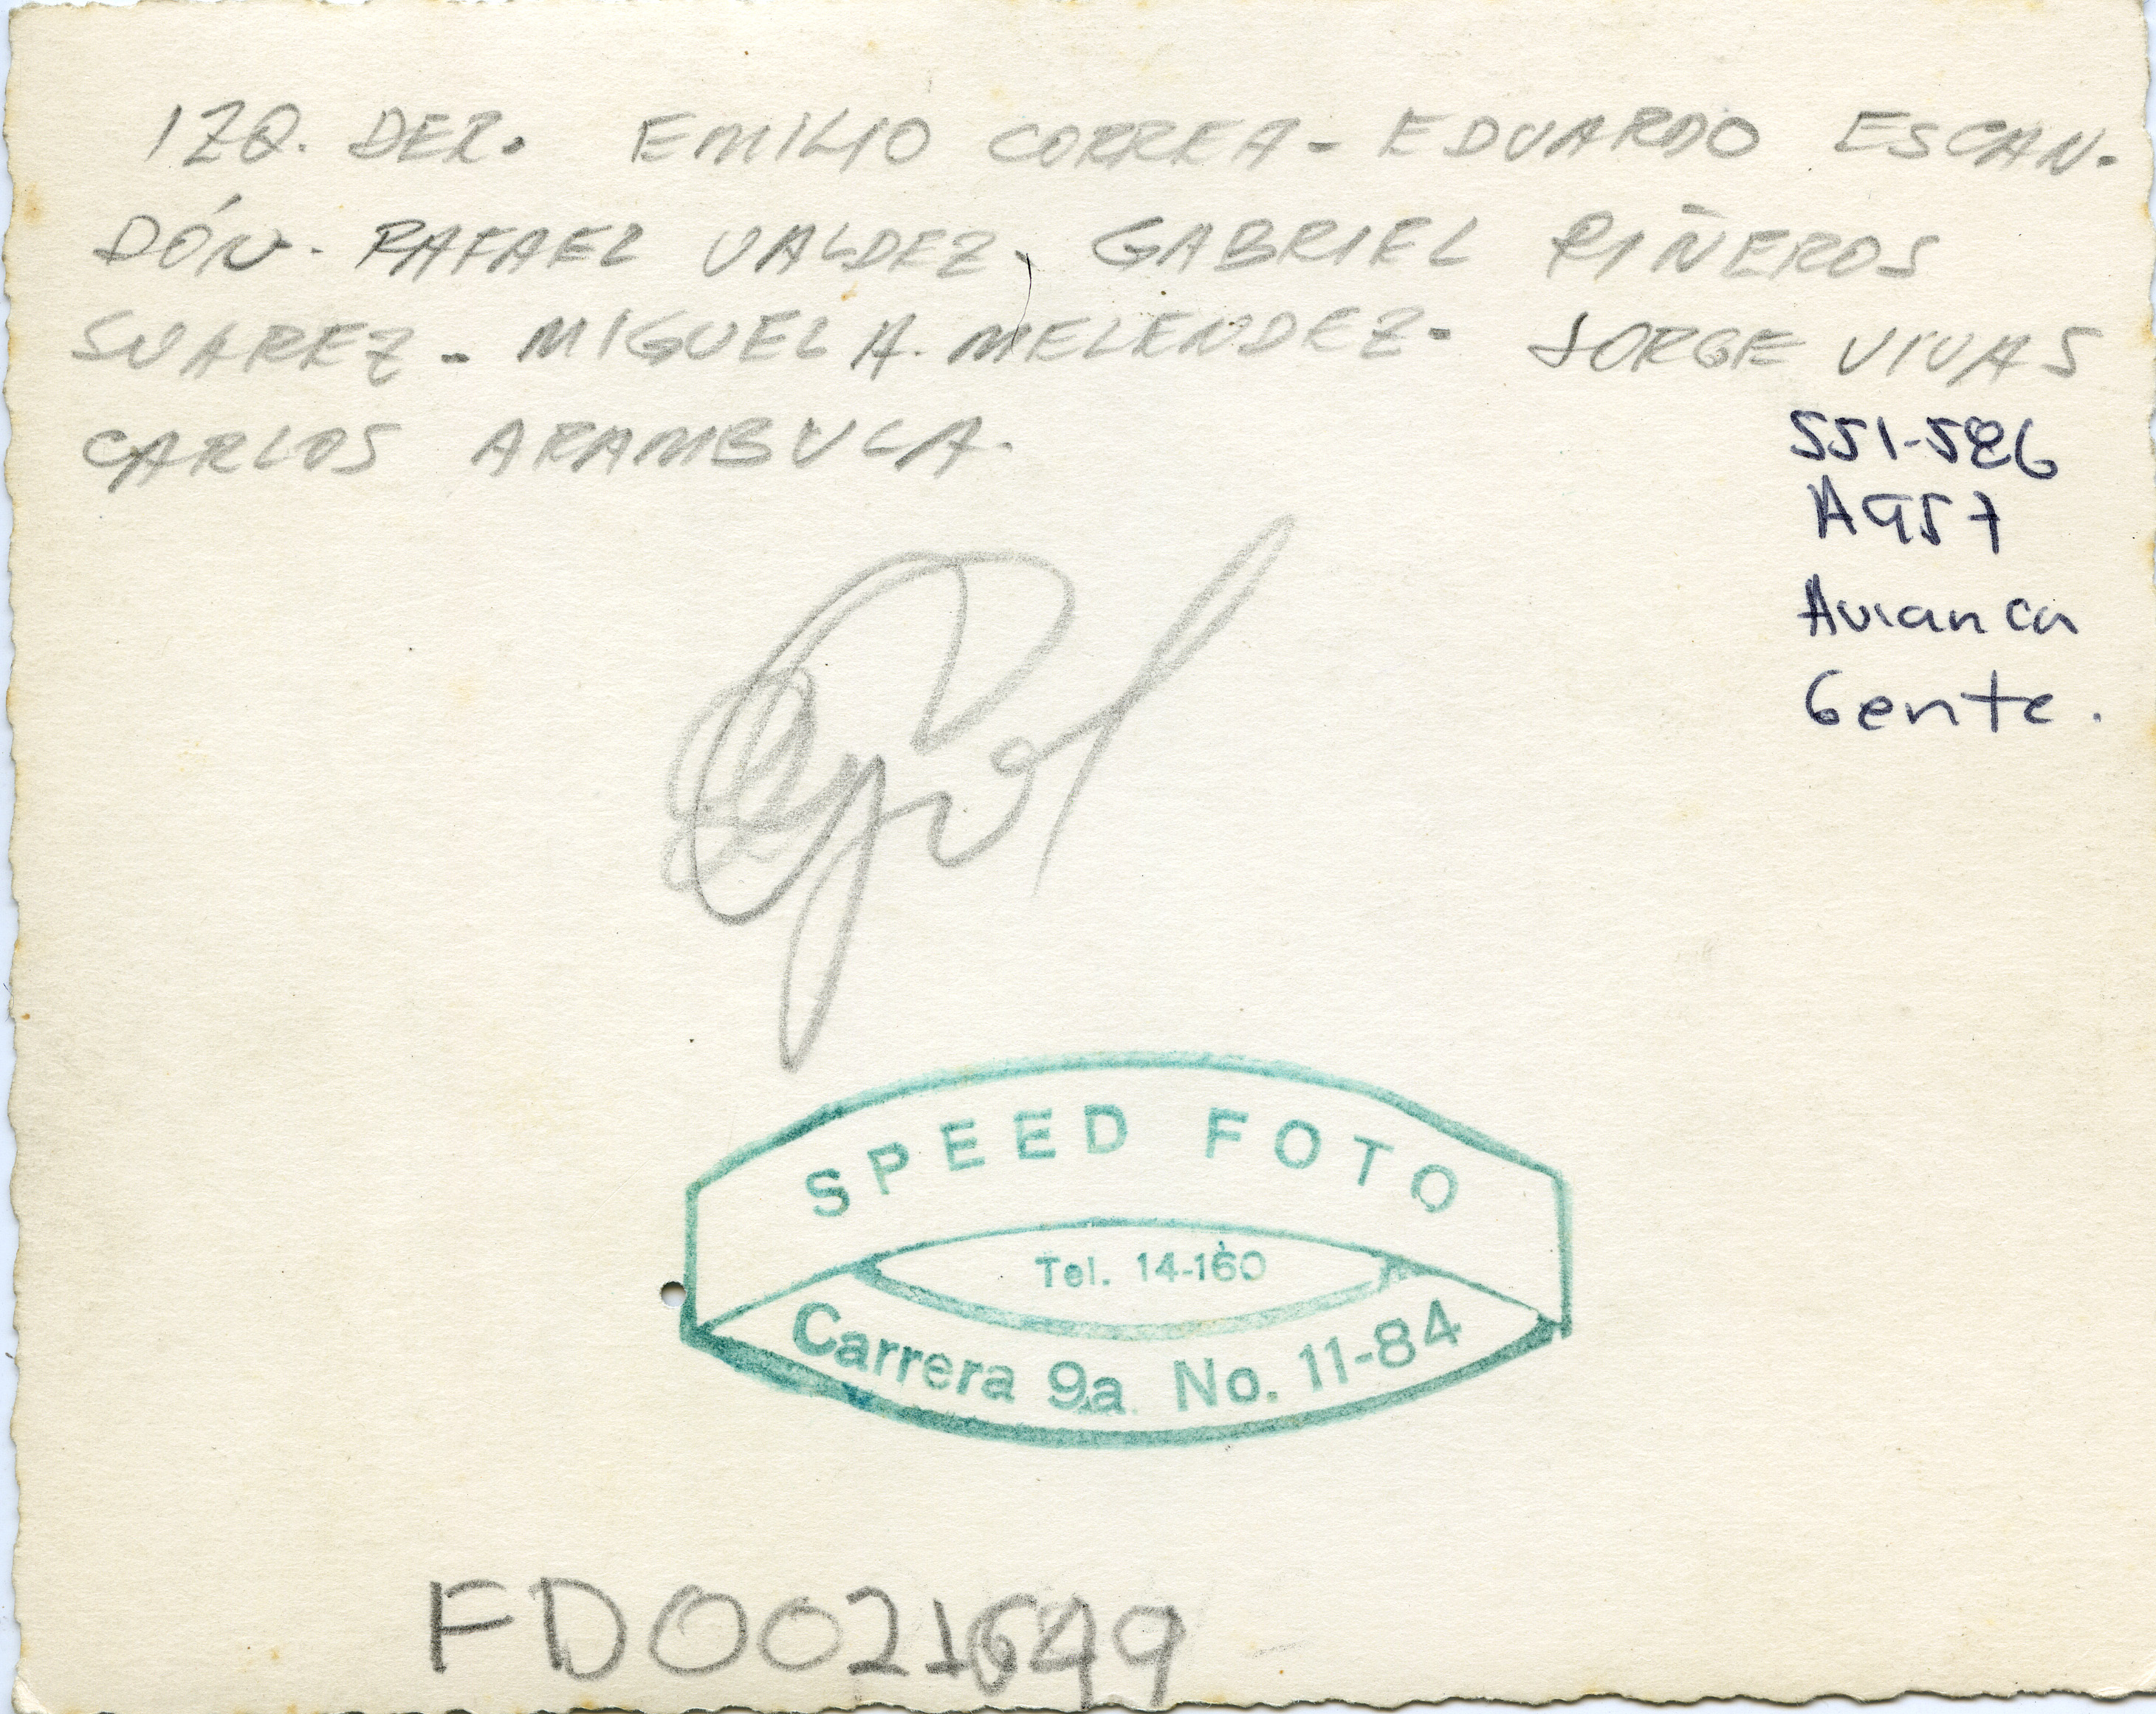 IZQ. DER. EMILIO CORREA - EDUARDO ESCAN-
DÓN - RAFAEL VALDEZ, GABRIEL PIÑEROS
SUAREZ - MIGUEL A. MELENDEZ - JORGE VIVAS
CARLOS ARAMBULA.
551-586
A957
Avianca
Gente.
SPEED FOTO
Tel. 14-160
Carrera 9a. No. 11-84
FD0021649